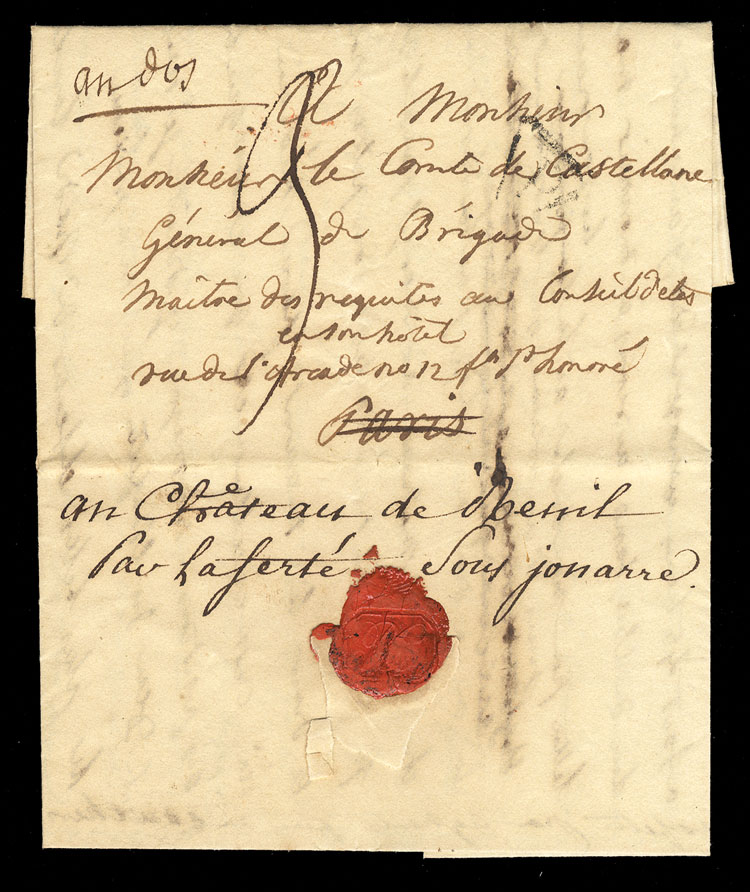 au dos
A Monsieur
Monsieur le Comte de Castellane
Général de Brigade
Maître des requêtes au Conseil d'état
en son hôtel
rue de l'arcade no 12 fg St honoré
Paris
au Château de Reuil
Par Laferté Sous jouarre